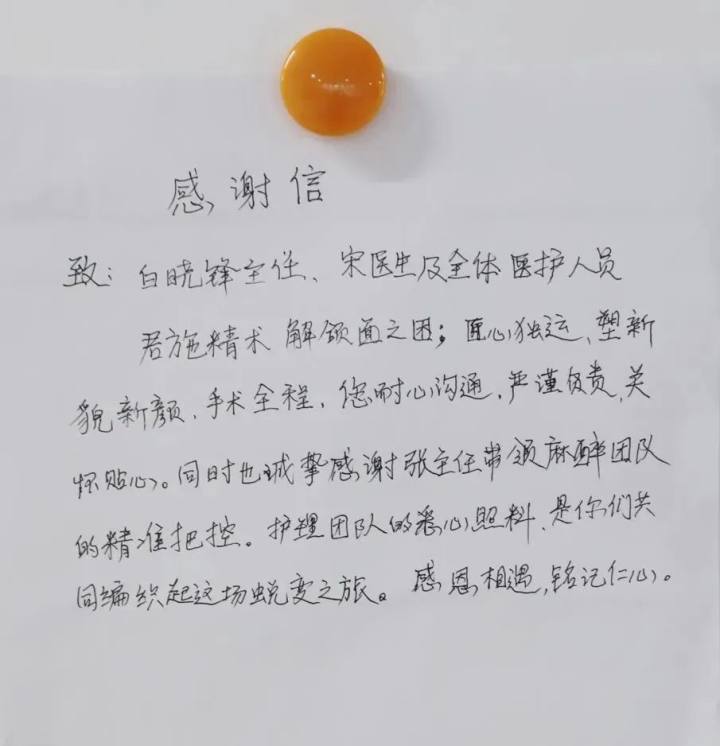 感谢信
致：白晓锋主任、宋医生及全体医护人员
君施精术 解颌面之困；匠心独运、塑新
貌新颜、手术全程，您耐心沟通，严谨负责，关
怀贴心。同时也诚挚感谢张主任带领麻醉团队
的精准把控。护理团队的悉心照料，是你们共
同编织起这场蜕变之旅。感恩相遇，铭记仁心。